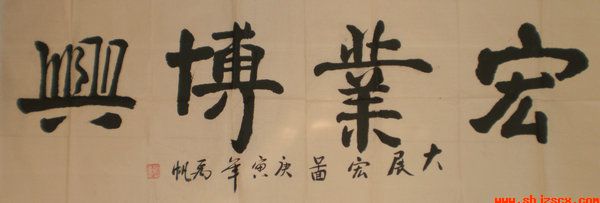 宏業博興
大展宏圖庚寅年帆
www.shjzscx.com